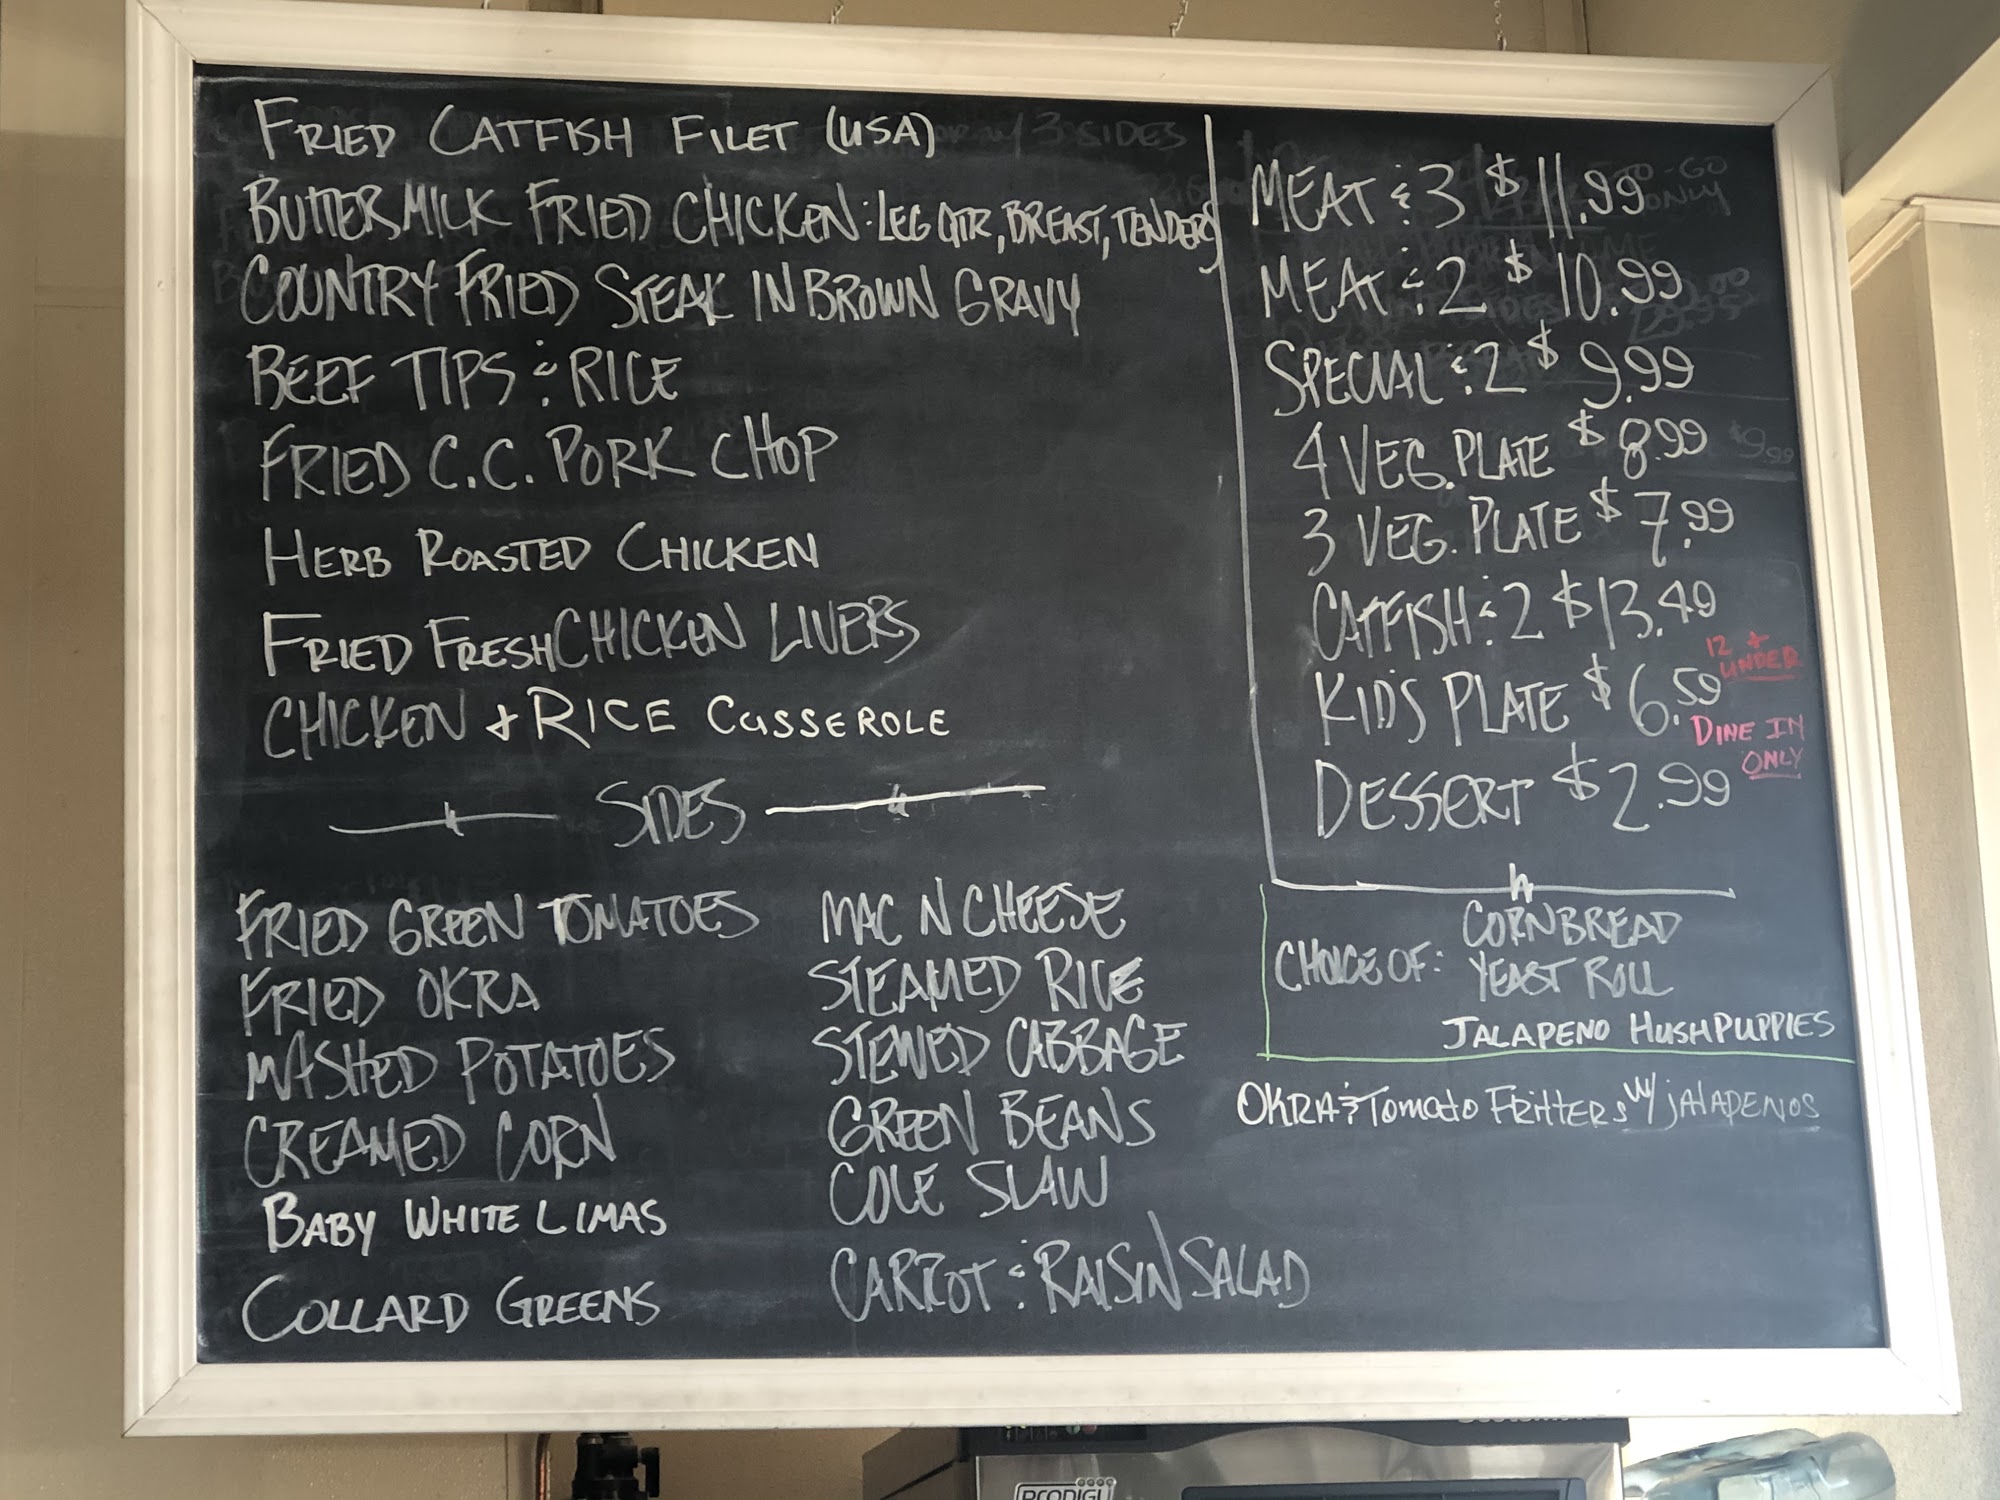 FRIED CATFISH FILET (USA)
BUTTERMILK FRIED CHICKEN: LEG QTR, BREAST, TENDERS
COUNTRY FRIED STEAK IN BROWN GRAVY
BEEF TIPS & RICE
FRIED C.C. PORK CHOP
HERB ROASTED CHICKEN
FRIED FRESH CHICKEN LIVERS
CHICKEN + RICE CASSEROLE
SIDES
FRIED GREEN TOMATOES
FRIED OKRA
MASHED POTATOES
CREAMED CORN
BABY WHITE LIMAS
COLLARD GREENS
MAC N CHEESE
STEAMED RICE
STEWED CABBAGE
GREEN BEANS
COLE SLAW
CARROT & RAISIN SALAD
MEAT & 3 $11.99
MEAT & 2 $10.99
SPECIAL & 2 $9.99
4 VEG. PLATE $8.99
3 VEG. PLATE $7.99
CATFISH & 2 $13.49
12 + UNDER
KID'S PLATE $6.59
DINE IN ONLY
DESSERT $2.99
CORNBREAD
CHOICE OF: YEAST ROLL
JALAPENO HUSHPUPPIES
OKRA & TOMATO FRITTERS W/ JALAPENOS
PRODIGY